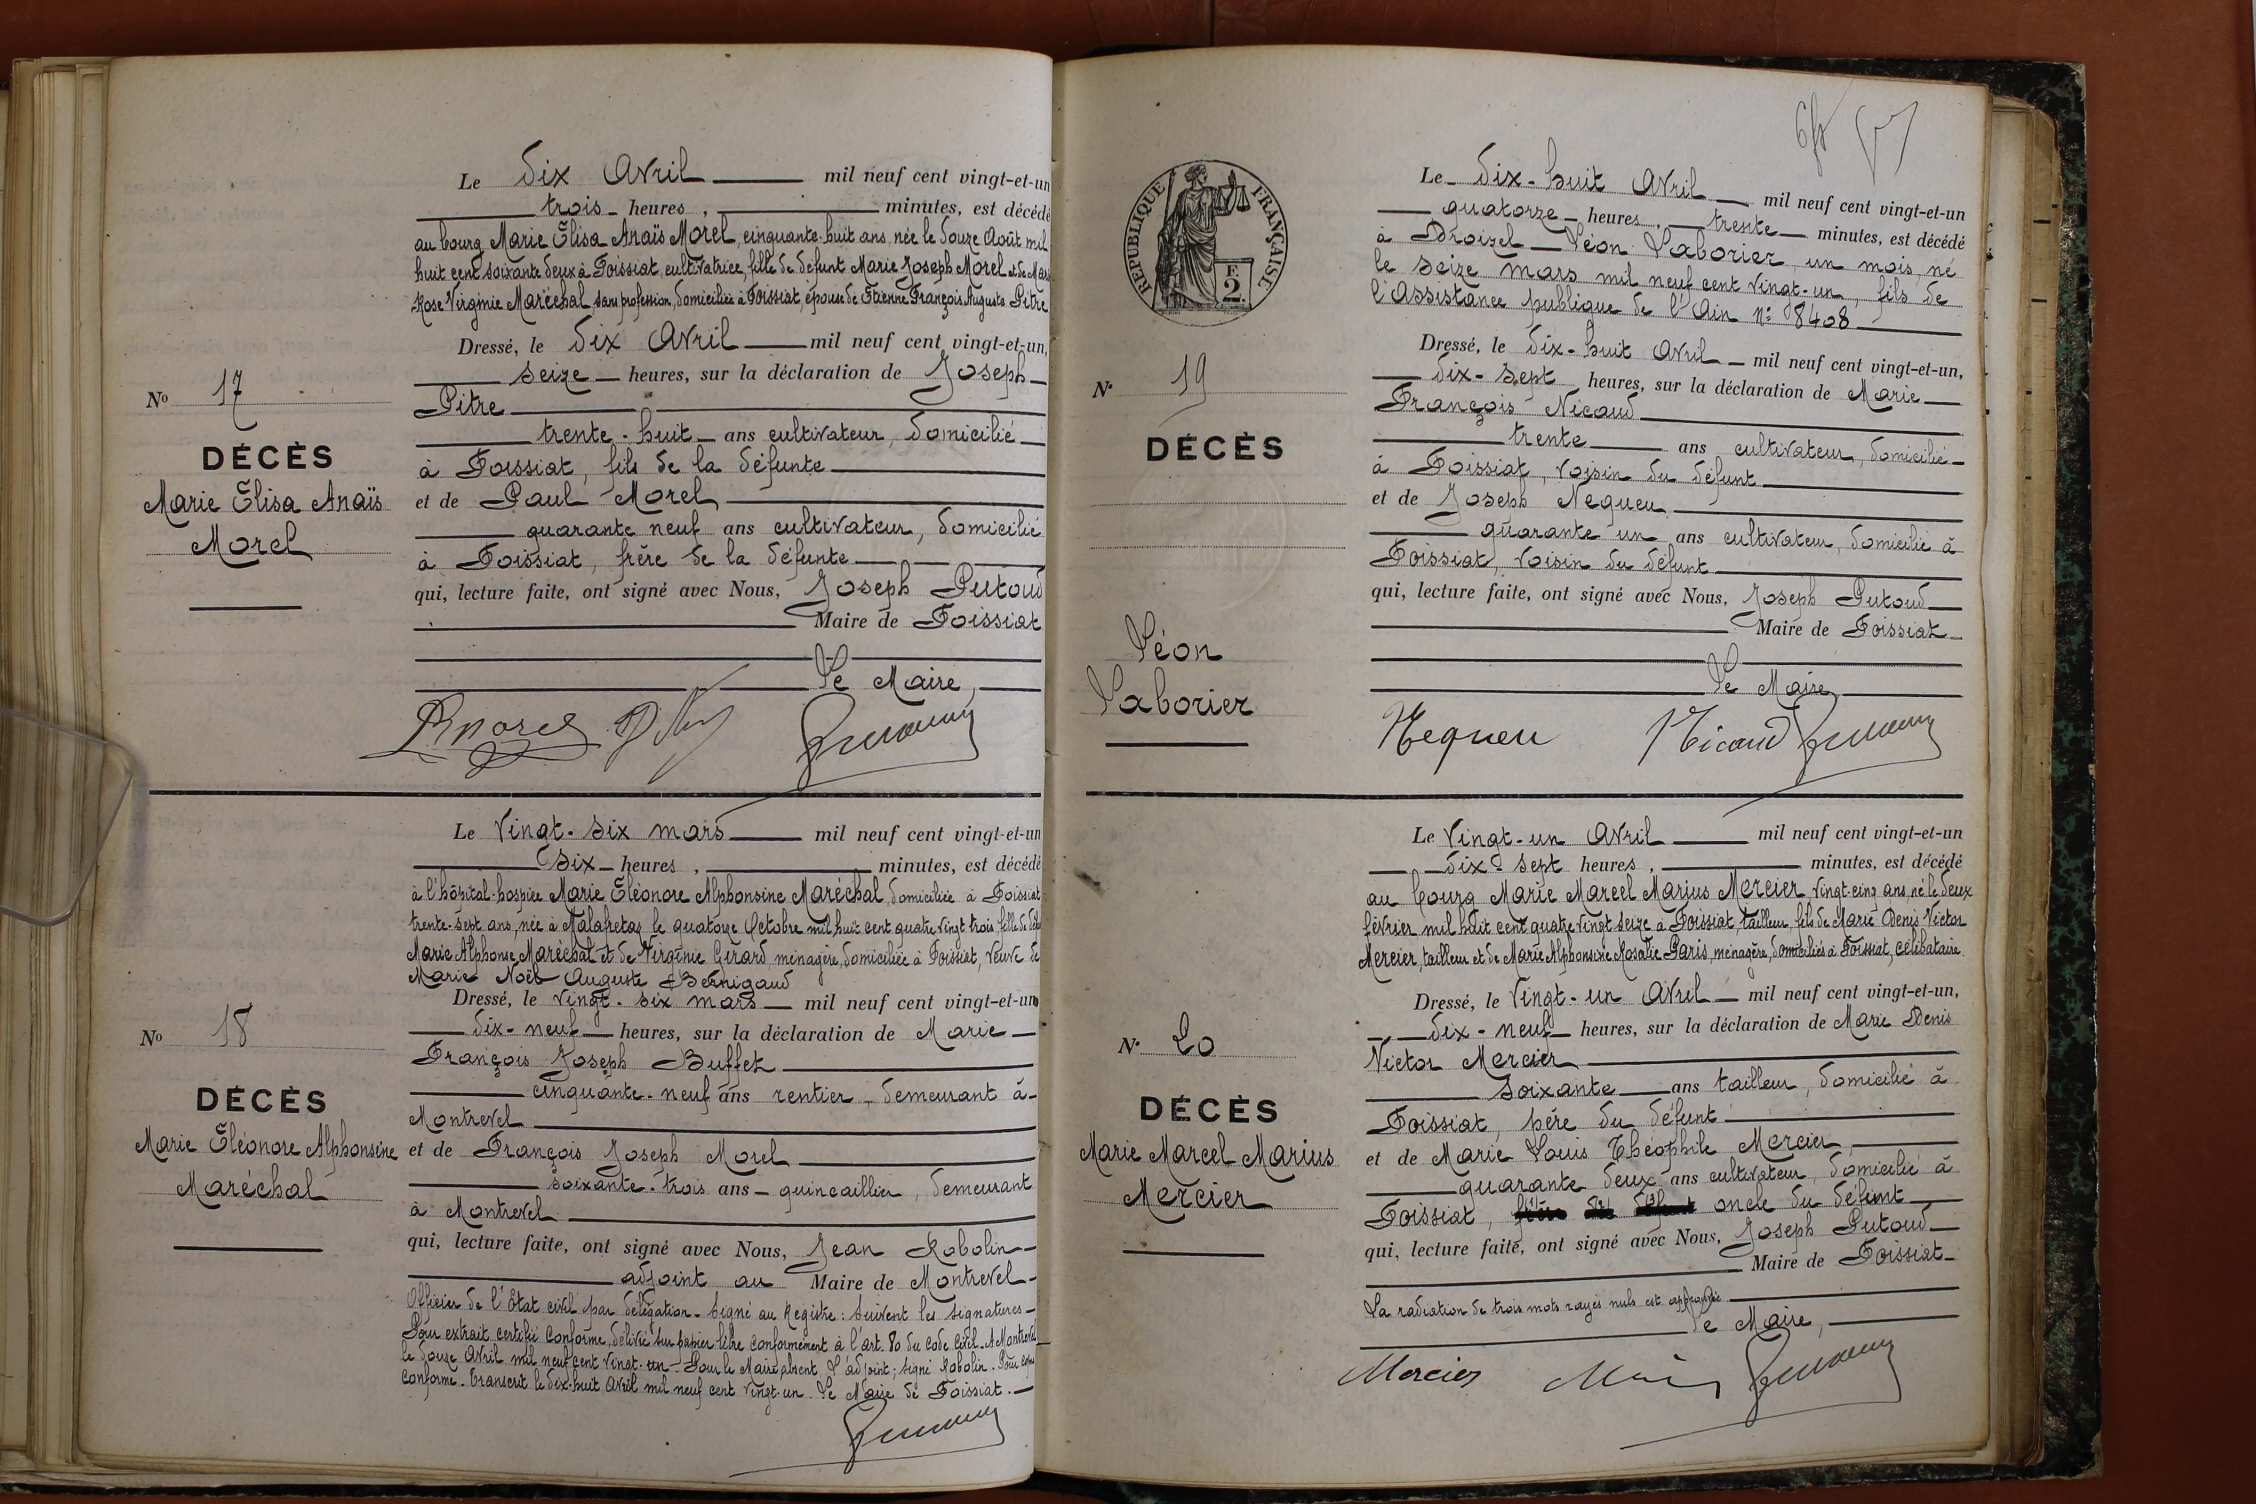 Le dix Avril mil neuf cent vingt-et-un
trois heures, minutes, est décédé
au bourg Marie Elisa Anaïs Morel, cinquante-huit ans, née le douze Août mil
huit cent soixante deux à Foissiat, cultivatrice, fille de défunt Marie Joseph Morel et de Marie
Rose Virginie Maréchal, sans profession, domiciliée à Foissiat, épouse de Etienne François Auguste Pitre
Dressé, le dix Avril mil neuf cent vingt-et-un,
seize heures, sur la déclaration de Joseph
Pitre
trente-huit ans cultivateur, domicilié
à Foissiat, fils de la défunte
et de Paul Morel
quarante neuf ans cultivateur, domicilié
à Foissiat, frère de la défunte
qui, lecture faite, ont signé avec Nous, Joseph Putoud
Maire de Foissiat
Le Maire,
PMorel
No 17
DÉCÈS
Marie Elisa Anaïs
Morel
Le vingt-six mars mil neuf cent vingt-et-un
six heures, minutes, est décédé
à l'hôpital-hospice Marie Eléonore Alphonsine Maréchal, domiciliée à Foissiat
trente-sept ans, née à Malafretaz le quatorze Octobre mil huit cent quatre vingt trois, fille de
Marie Alphonse Maréchal et de Virginie Girard, ménagère, domiciliée à Foissiat, veuve de
Marie Noël Auguste Bernigaud
Dressé, le vingt-six mars mil neuf cent vingt-et-un
dix-neuf heures, sur la déclaration de Marie
François Joseph Buffet
cinquante-neuf ans rentier, demeurant à
Montrevel
et de François Joseph Morel
soixante-trois ans quincaillier, demeurant
à Montrevel
qui, lecture faite, ont signé avec Nous, Jean Robolin
adjoint au Maire de Montrevel
Officier de l'Etat civil par délégation. Signé au Registre: Suivent les signatures
Pour extrait certifié conforme, délivré sur papier libre conformément à l'art. 80 du code civil. A Montrevel
le douze Avril mil neuf cent vingt-un. Pour le Maire absent, L'adjoint; signé Robolin. Pour copie
conforme. Transcrit le dix-huit Avril mil neuf cent vingt-un. Le Maire de Foissiat.
No 18
DÉCÈS
Marie Eléonore Alphonsine
Maréchal
RÉPUBLIQUE FRANÇAISE
E
2
Le dix-huit Avril mil neuf cent vingt-et-un
quatorze heures, trente minutes, est décédé
à Droizel Léon Laborier, un mois, né
le seize mars mil neuf cent vingt-un, fils de
l'Assistance publique de l'Ain No 8408
Dressé, le dix-huit Avril mil neuf cent vingt-et-un,
dix-sept heures, sur la déclaration de Marie
François Nicaud
trente ans cultivateur, domicilié
à Foissiat, voisin du défunt
et de Joseph Nequeu
quarante un ans cultivateur, domicilié à
Foissiat, voisin du défunt
qui, lecture faite, ont signé avec Nous, Joseph Putoud
Maire de Foissiat
Le Maire
Nequeu Nicaud
No 19
DÉCÈS
Léon
Laborier
Le vingt-un Avril mil neuf cent vingt-et-un
dix-sept heures, minutes, est décédé
au bourg Marie Marcel Marius Mercier, vingt-cinq ans, né le deux
février mil huit cent quatre vingt seize à Foissiat, tailleur, fils de Marie Denis Victor
Mercier, tailleur et de Marie Alphonsine Rosalie Paris, ménagère, domiciliés à Foissiat, célibataire
Dressé, le vingt-un Avril mil neuf cent vingt-et-un,
dix-neuf heures, sur la déclaration de Marie Denis
Victor Mercier
soixante ans tailleur, domicilié à
Foissiat, père du défunt
et de Marie Louis Théophile Mercier,
quarante deux ans cultivateur, domicilié à
Foissiat, oncle du défunt
qui, lecture faite, ont signé avec Nous, Joseph Putoud
Maire de Foissiat
La radiation de trois mots rayés nuls est approuvée
Le Maire,
Mercier
No 20
DÉCÈS
Marie Marcel Marius
Mercier